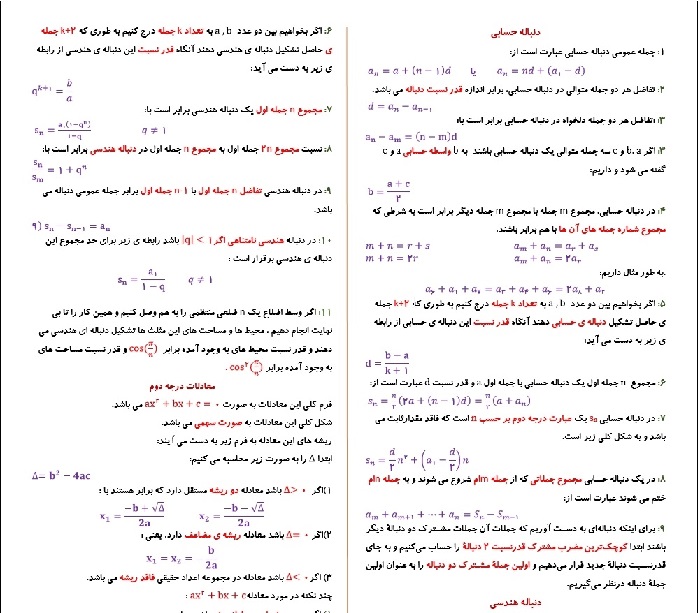 دنباله حسابی
۱: جمله عمومی دنباله حسابی عبارت است از:
aₙ = a + (n − 1)d یا aₙ = nd + (a₁ − d)
۲: تفاضل هر دو جمله متوالی در دنباله حسابی، برابر اندازه قدر نسبت دنباله می باشد.
d = aₙ − aₙ₋₁
۳: تفاضل هر دو جمله دلخواه در دنباله حسابی برابر است با:
aₙ − aₘ = (n − m)d
۳: اگر a، b و c سه جمله متوالی یک دنباله حسابی باشند به b واسطه حسابی a و c
گفته می شود و داریم:
b = (a + c)/۲
۴: در دنباله حسابی، مجموع m جمله با مجموع m جمله دیگر برابر است به شرطی که
مجموع شماره جمله های آن ها با هم برابر باشند.
m + n = r + s aₘ + aₙ = aᵣ + aₛ
m + n = ۲r aₘ + aₙ = ۲aᵣ
به طور مثال داریم:
۵: اگر بخواهیم بین دو عدد a , b به تعداد k جمله درج کنیم به طوری که k+۲ جمله
ی حاصل تشکیل دنباله ی حسابی دهند آنگاه قدر نسبت این دنباله ی حسابی از رابطه
ی زیر به دست می آید:
d = (b − a)/(k + ۱)
۶: مجموع n جمله اول یک دنباله حسابی با جمله اول a و قدر نسبت d عبارت است از:
sₙ = n/۲ (۲a + (n − ۱)d) = n/۲ (a + aₙ)
۷: در دنباله حسابی sₙ یک عبارت درجه دوم بر حسب n است که فاقد مقدارثابت می
باشد و به شکل کلی زیر است.
sₙ = d/۲ n² + (a₁ − d/۲)n
۸: در یک دنباله حسابی مجموع جملاتی که از جمله mام شروع می شوند و به جمله nام
ختم می شوند عبارت است از:
aₘ + aₘ₊₁ + ⋯ + aₙ = Sₙ − Sₘ₋₁
۹: برای اینکه دنباله‌ای به دست آوریم که جملات آن جملات مشترک دو دنبالهٔ دیگر
باشند ابتدا کوچک‌ترین مضرب مشترک قدرنسبت ۲ دنبالهٔ را حساب می‌کنیم و به جای
قدرنسبت دنبالهٔ جدید قرار می‌دهیم و اولین جملهٔ مشترک دو دنباله را به عنوان اولین
جملهٔ دنباله درنظر می‌گیریم.
دنباله هندسی
۶: اگر بخواهیم بین دو عدد a , b به تعداد k جمله درج کنیم به طوری که k+۲ جمله
ی حاصل تشکیل دنباله ی هندسی دهند آنگاه قدر نسبت این دنباله ی هندسی از رابطه
ی زیر به دست می آید:
qᵏ⁺¹ = b/a
۷: مجموع n جمله اول یک دنباله هندسی برابر است با:
sₙ = a₁(۱−qⁿ)/(۱−q) q ≠ ۱
۸: نسبت مجموع ۲n جمله اول به مجموع n جمله اول در دنباله هندسی برابر است با:
sₙ/sₘ = ۱ + qⁿ
۹: در دنباله هندسی تفاضل n جمله اول با n-۱ جمله اول برابر جمله عمومی دنباله می
باشد.
۹) sₙ − sₙ₋₁ = aₙ
۱۰: در دنباله هندسی نامتناهی اگر |q| < ۱ باشد رابطه ی زیر برای حد مجموع این
دنباله ی هندسی برقرار است :
sₙ = a₁/(۱ − q) q ≠ ۱
۱۱: اگر وسط اضلاع یک n ضلعی منتظمی را به هم وصل کنیم و همین کار را تا بی
نهایت انجام دهیم ، محیط ها و مساحت های این مثلث ها تشکیل دنباله ای هندسی می
دهند و قدر نسبت محیط های به وجود آمده برابر cos(π/n) و قدر نسبت مساحت های
به وجود آمده برابر cos²(π/n) .
معادلات درجه دوم
فرم کلی این معادلات به صورت ax² + bx + c = ۰ می باشد.
شکل کلی این معادلات به صورت سهمی می باشد.
ریشه های این معادله به فرم زیر به دست می آیند:
ابتدا Δ را به صورت زیر محاسبه می کنیم:
Δ= b² − 4ac
۱)اگر Δ> ۰ باشد معادله دو ریشه مستقل دارد که برابر هستند با :
x₁ = (−b + √Δ)/2a x₂ = (−b − √Δ)/2a
۲)اگر Δ= ۰ باشد معادله ریشه ی مضاعف دارد، یعنی :
x₁ = x₂ = b/2a
۳) اگر Δ< ۰ باشد معادله در مجموعه اعداد حقیقی فاقد ریشه می باشد.
چند نکته در مورد معادله ax² + bx + c :